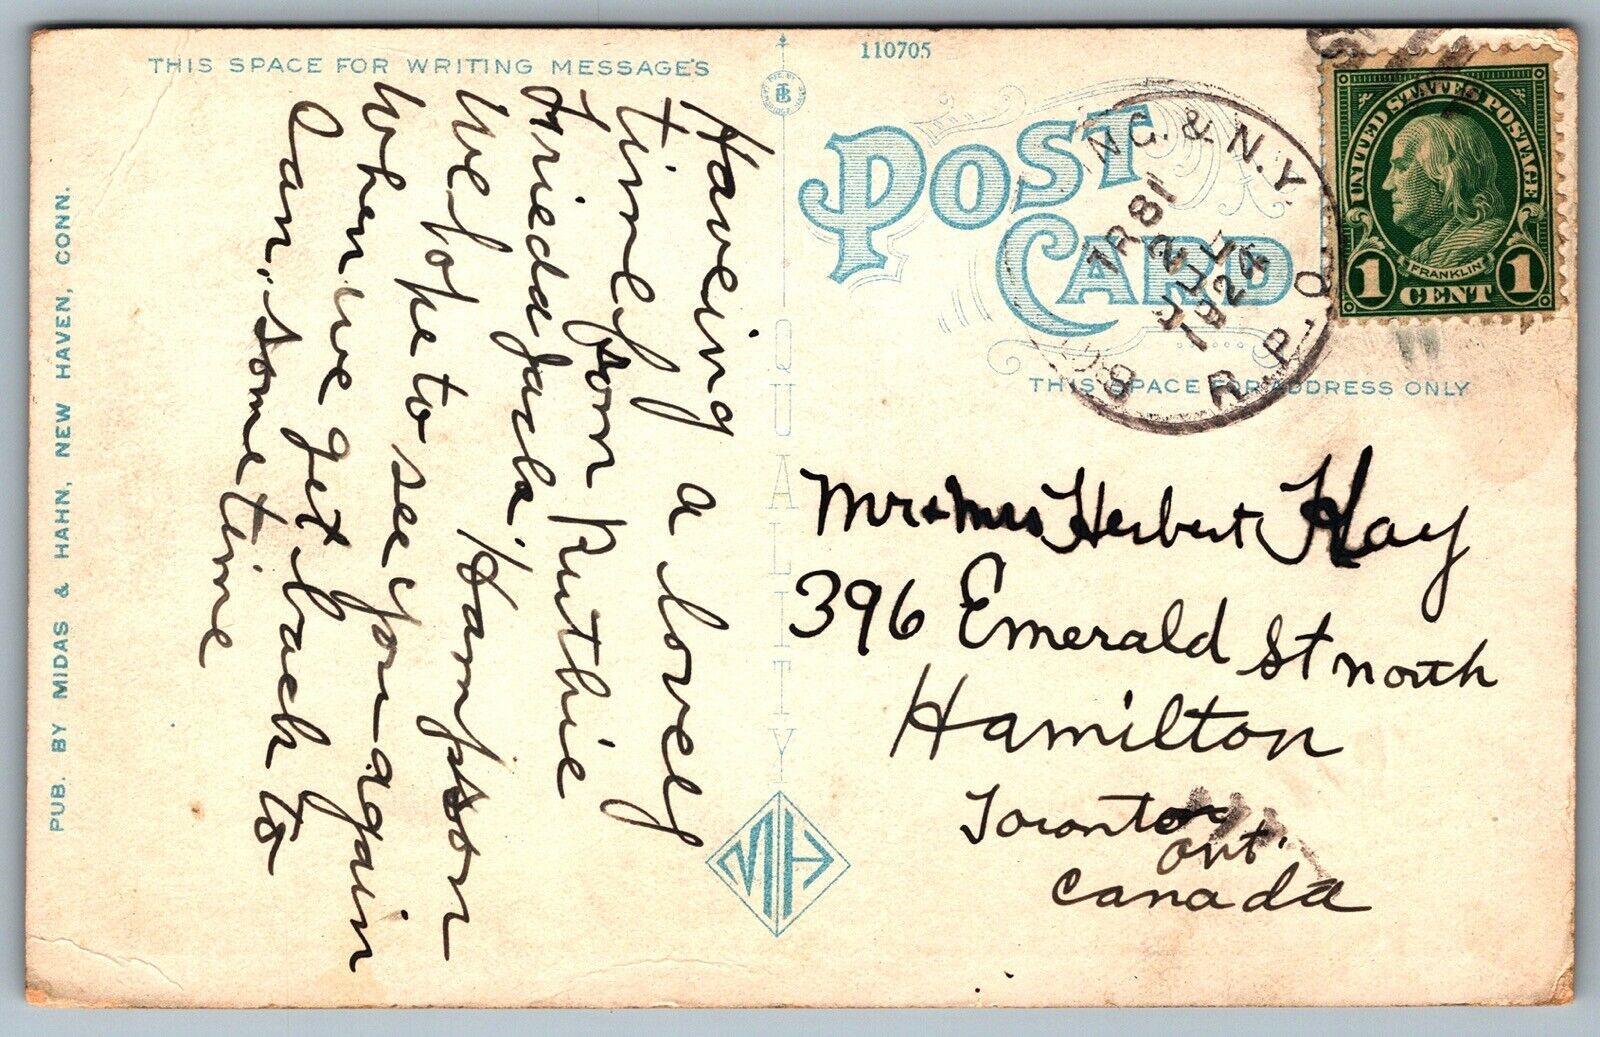 THIS SPACE FOR WRITING MESSAGES
110705
POST CARD
THIS SPACE FOR ADDRESS ONLY
PUB. BY MIDAS & HAHN, NEW HAVEN, CONN.
QUALITY
MH
Haveing a lovely
time from Ruthie
Frieda Jack
We hope to
see you again
When we get back to
Can. some time
N.Y.
R.P.O.
TR 81
JUL
1924
UNITED STATES POSTAGE
FRANKLIN
1 CENT 1
Mr + Mrs Herbert Hay
396 Emerald St North
Hamilton
Toronto
Ont.
Canada